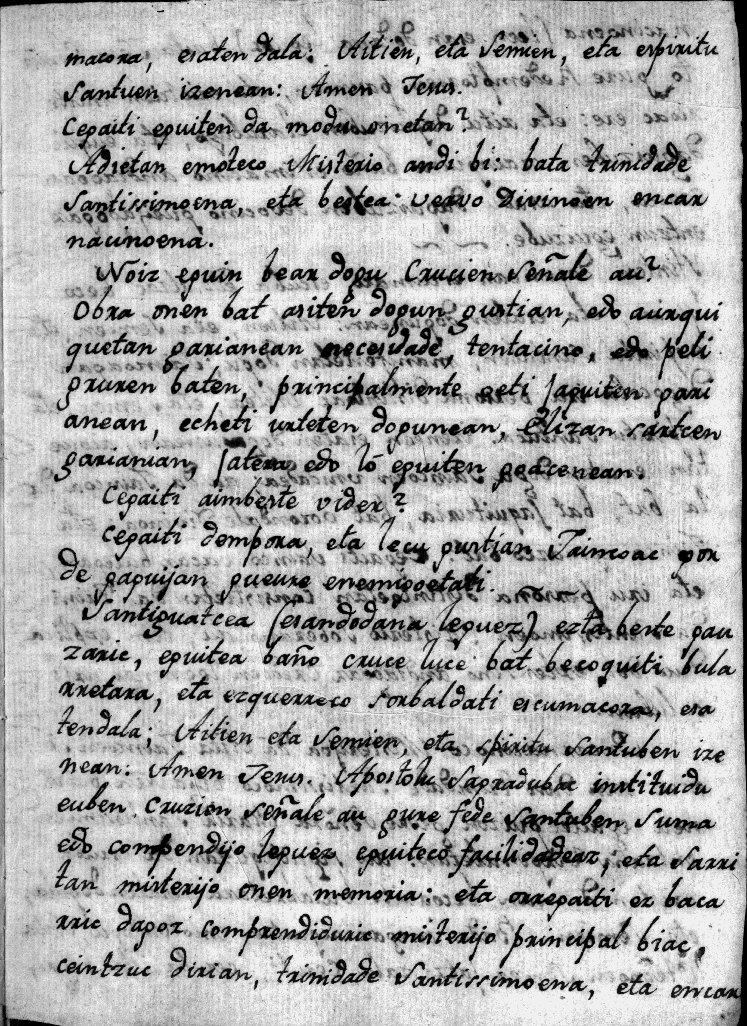 macora, esaten dala: Aitien, eta Semien, eta espiritu
Santuen izenean: Amen Jesus.
Cepaiti eguiten da modu onetan?
Adietan emoteco Misterio andi bi: bata trinidade
Santissimoena, eta bestea: vervo Divinoen encar
nacinoena.
Noiz eguin bear dogu Crucien Señale au?
Obra onen bat asiten dogun gustian, edo aurqui
quetan garianean necesidade, tentacino, edo peli
gruren baten, principalmente oeti jaguiten gari
anean, echeti urteten dogunean, Elizan sartcen
garianian, jatera edo lo eguiten goacenean.
Cepaiti aimbeste vider?
Cepaiti dempora, eta lecu gustian Jaincoac gor
de gaguijan gueure enemigoetati.
Santiguatcea (esandodana leguez) ezta beste gau
zaric, eguitea baño cruce luce bat becoquiti bula
rretara, eta ezquerreco sorbaldati escumacora, esa
tendala; Aitien eta Semien, eta spiritu Santuben ize
nean: Amen Jesus. Apostolu Sagradubac instituidu
euben Cruzien señale au gure fede Santuben Suma
edo compendijo leguez eguiteco facilidadeaz, eta sarri
tan misterijo onen memoria: eta orregaiti ez baca
rric dagoz comprendiduric misterijo principal biac,
ceintzuc dirian, trinidade Santissimoena, eta encar